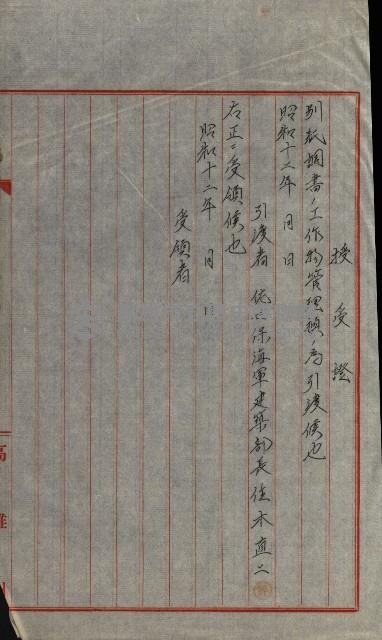 授受證
別紙調書ノ工作物管理換ノ為引渡候也
昭和十二年 月 日
引渡者 佐世保海軍建築部長 佐木直二
右正ニ受領候也
昭和十二年 月 日
受領者
高雄